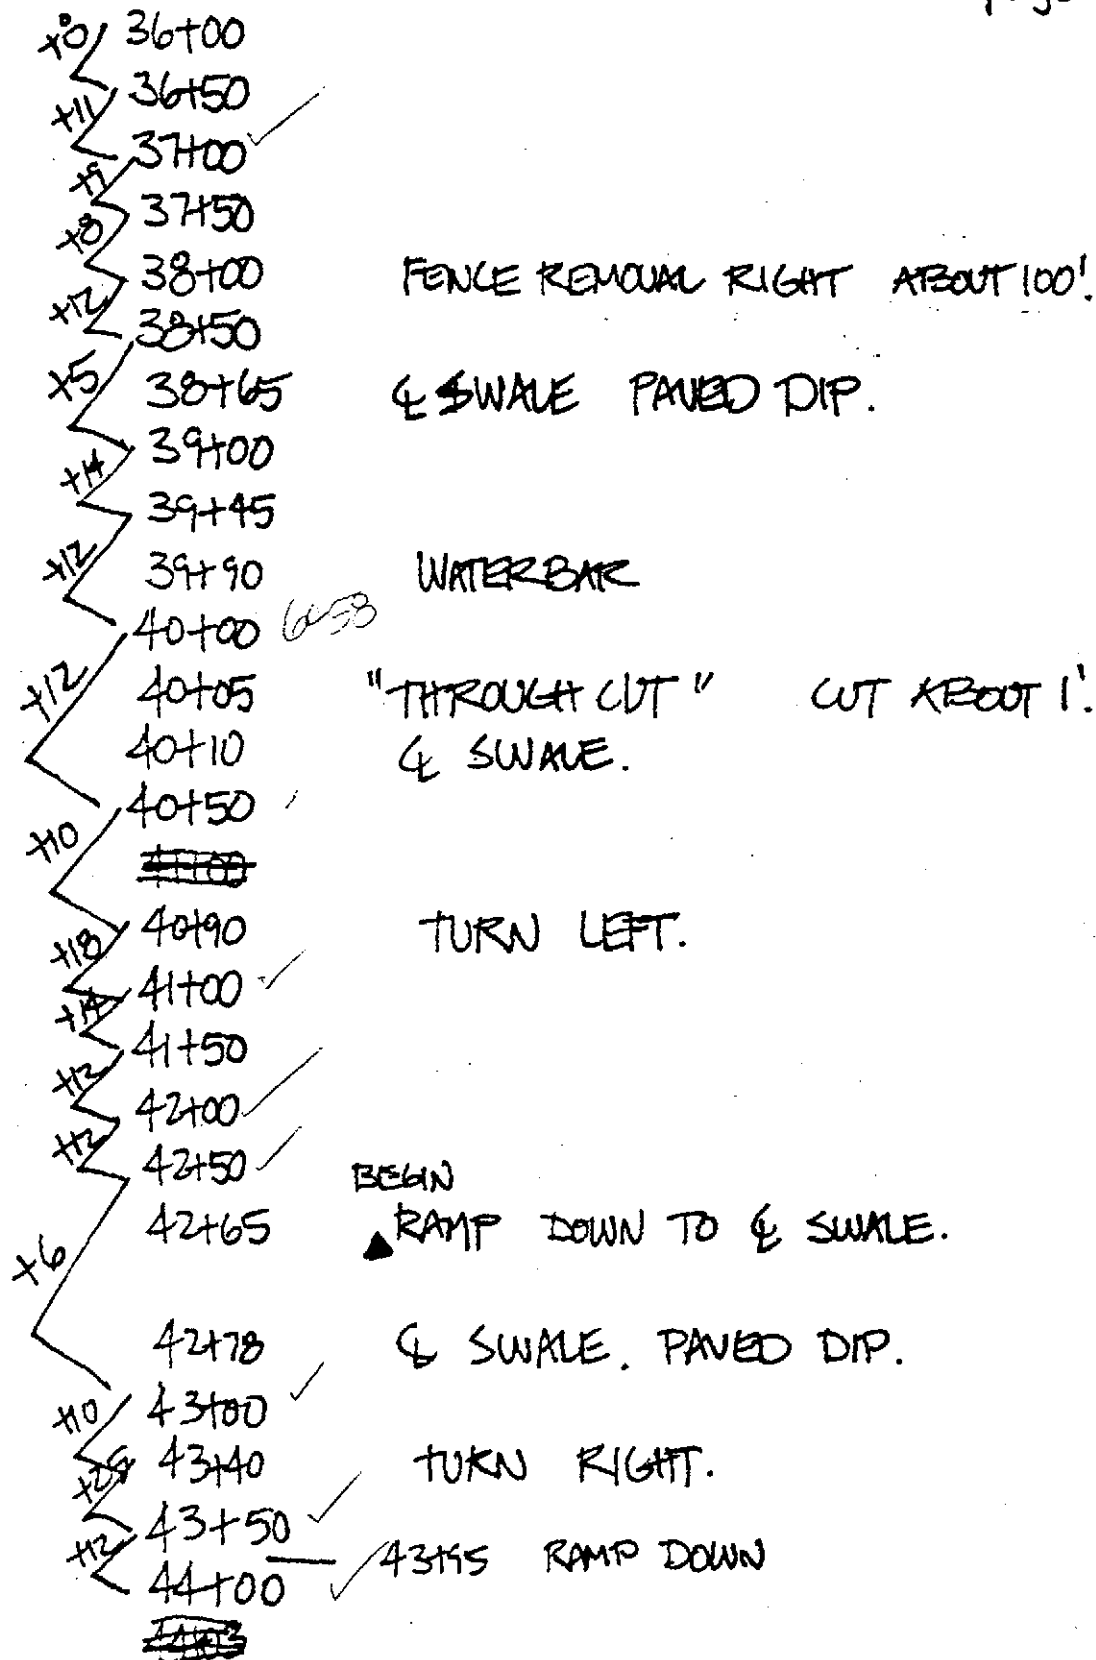 +8 36+00
+11 36+50
37+00
+9
37+50
+8
38+00 FENCE REMOVAL RIGHT ABOUT 100'.
+12
38+50
+5 38+65 ℄ SWALE PAVED DIP.
39+00
+14
39+45
+12 39+90 WATERBAR
40+00
+12 40+05 "THROUGH CUT" CUT ABOUT 1'.
40+10 ℄ SWALE.
40+50
+10
41+00
40+90 TURN LEFT.
+18
41+00
+14
41+50
+12
42+00
+12
42+50
BEGIN
42+65 RAMP DOWN TO ℄ SWALE.
+6
42+78 ℄ SWALE. PAVED DIP.
43+00
+10
43+40 TURN RIGHT.
43+50
+12
43+95 RAMP DOWN
44+00